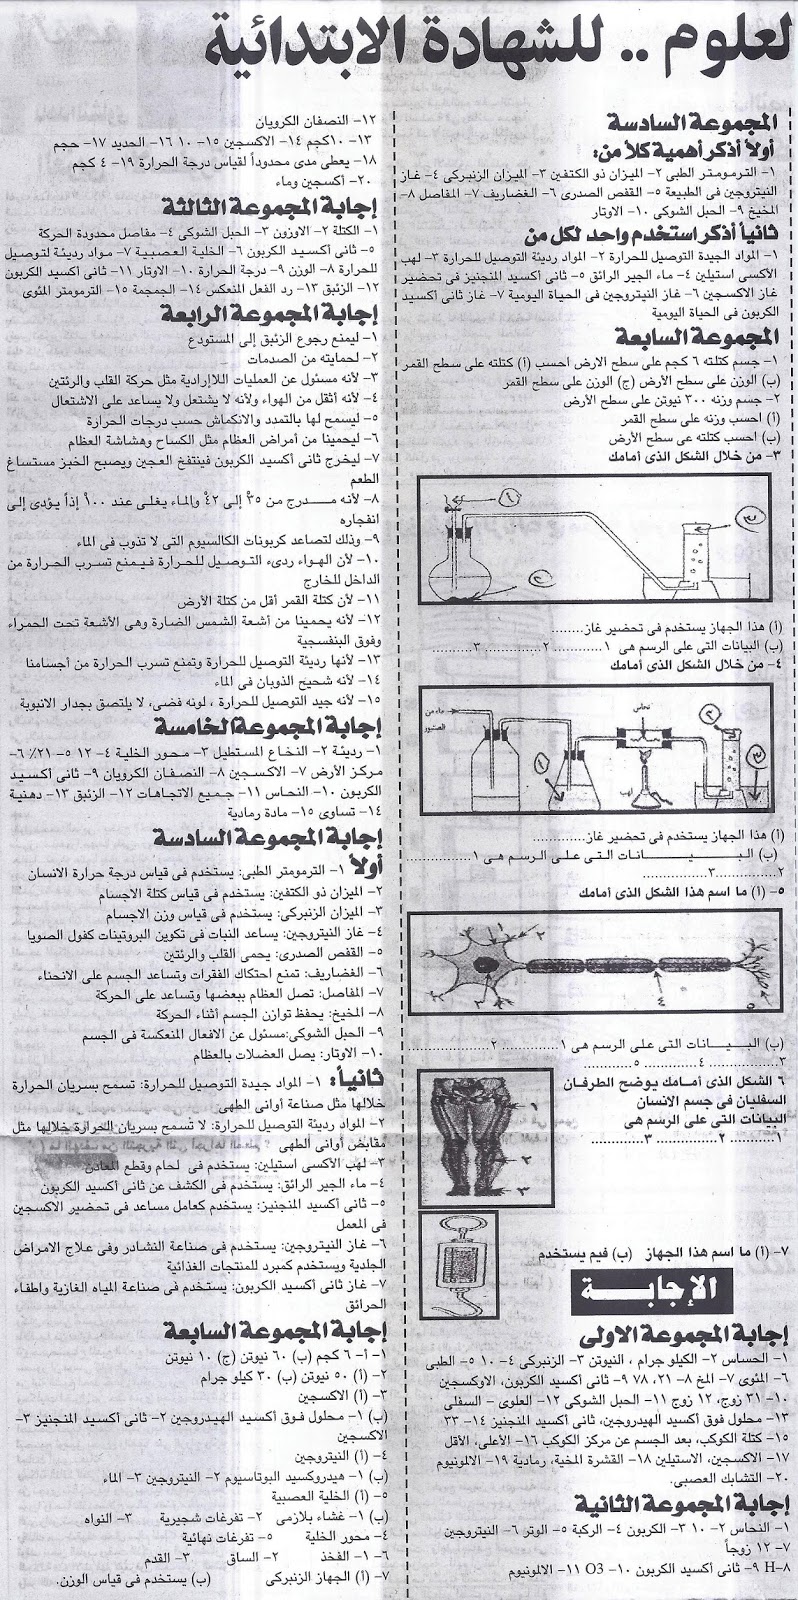 لعلوم .. للشهادة الابتدائية
المجموعة السادسة
أولاً أذكر أهمية كلاً من:
١- الترمومتر الطبى ٢- الميزان ذو الكتفين ٣- الميزان الزنبركى ٤- غاز
النيتروجين فى الطبيعة ٥- القفص الصدرى ٦- الغضاريف ٧- المفاصل ٨-
المخيخ ٩- الحبل الشوكى ١٠- الاوتار
ثانياً أذكر استخدم واحد لكل من
١- المواد الجيدة التوصيل للحرارة ٢- المواد رديئة التوصيل للحرارة ٣- لهب
الأكسى استيلين ٤- ماء الجير الرائق ٥- ثانى أكسيد المنجنيز فى تحضير
غاز الاكسجين ٦- غاز النيتروجين فى الحياة اليومية ٧- غاز ثانى أكسيد
الكربون فى الحياة اليومية
المجموعة السابعة
١- جسم كتلته ٦ كجم على سطح الارض أحسب (أ) كتلته على سطح القمر
(ب) الوزن على سطح الأرض (ج) الوزن على سطح القمر
٢- جسم وزنه ٣٠٠ نيوتن على سطح الأرض
(أ) احسب وزنه على سطح القمر
(ب) احسب كتلته عى سطح الأرض
٣- من خلال الشكل الذى أمامك
١
٢
٣
(أ) هذا الجهاز يستخدم فى تحضير غاز........
(ب) البيانات التى على الرسم هى ١............ ٢............ ٣............
٤- من خلال الشكل الذى أمامك
ماء من
الصنبور
نحاس
لهب
١
٢
٣
(أ) هذا الجهاز يستخدم فى تحضير غاز.............
(ب) البـيـــــــانات التى على الرسم هى ١...............
٢...............٣...............
٥- (أ) ما اسم هذا الشكل الذى أمامك
١
٢
٣
٤
٥
(ب) البـــيـــانات التى على الرسم هى ١............ ٢............
٣............ ٤............ ٥............
٦ الشكل الذى أمامك يوضح الطرفان
السفليان فى جسم الانسان
البيانات التى على الرسم هى
١............ ٢............ ٣............
١
٢
٣
٧- (أ) ما اسم هذا الجهاز (ب) فيم يستخدم
الإجابــــة
إجابة المجموعة الاولى
١- الحساس ٢- الكيلو جرام ، النيوتن ٣- الزنبركى ٤- ١٠ ٥- الطبى
٦- المئوى ٧- المخ ٨- ٢١، ٧٨ ٩- ثانى أكسيد الكربون، الاوكسجين
١٠- ٣١ زوج، ١٢ زوج ١١- الحبل الشوكى ١٢- العلوى - السفلى
١٣- محلول فوق أكسيد الهيدروجين، ثانى أكسيد المنجنيز ١٤- ٣٣
١٥- كتلة الكوكب، بعد الجسم عن مركز الكوكب ١٦- الأعلى، الأقل
١٧- الاكسجين، الاستيلين ١٨- القشرة المخية، رمادية ١٩- الالومنيوم
٢٠- التشابك العصبى.
إجابة المجموعة الثانية
١- النحاس ٢- ١٠ ٣- الكربون ٤- الركبة ٥- الوتر ٦- النيتروجين
٧- ١٢ زوجاً
٨- H ٩- ثانى أكسيد الكربون ١٠- O3 ١١- الالومنيوم
١٢- النصفان الكرويان
١٣- ١٠كجم ١٤- الاكسجين ١٥- ١٠ ١٦- الحديد ١٧- حجم
١٨- يعطى مدى محدوداً لقياس درجة الحرارة ١٩- ٤ كجم
٢٠- أكسجين وماء
إجابة المجموعة الثالثة
١- الكتلة ٢- الاوزون ٣- الحبل الشوكى ٤- مفاصل محدودة الحركة
٥- ثانى أكسيد الكربون ٦- الخلية العصبية ٧- مواد رديئة لتوصيل
للحرارة ٨- الوزن ٩- درجة الحرارة ١٠- الاوتار ١١- ثانى أكسيد الكربون
١٢- الزئبق ١٣- رد الفعل المنعكس ١٤- الجمجمة ١٥- الترمومتر المئوى
إجابة المجموعة الرابعة
١- ليمنع رجوع الزئبق إلى المستودع
٢- لحمايته من الصدمات
٣- لأنه مسئول عن العمليات اللاإرادية مثل حركة القلب والرئتين
٤- لأنه أثقل من الهواء ولأنه لا يشتعل ولا يساعد على الاشتعال
٥- ليسمح لها بالتمدد والانكماش حسب درجات الحرارة
٦- ليحمينا من أمراض العظام مثل الكساح وهشاشة العظام
٧- ليخرج ثانى أكسيد الكربون فينتفخ العجين ويصبح الخبز مستساغ
الطعم
٨- لأنه مـــدرج من ٣٥ إلى ٤٢ والماء يغلى عند ١٠٠ إذاً يؤدى إلى
انفجاره
٩- وذلك لتصاعد كربونات الكالسيوم التى لا تذوب فى الماء
١٠- لأن الهـواء ردىء التوصـيـل للحرارة فـيـمنع تسرب الحرارة من
الداخل للخارج
١١- لأن كتلة القمر أقل من كتلة الأرض
١٢- لأنه يحمينا من أشعة الشمس الضارة وهى الأشعة تحت الحمراء
وفوق البنفسجية
١٣- لأنها رديئة التوصيل للحرارة وتمنع تسرب الحرارة من أجسامنا
١٤- لأنه شحيح الذوبان فى الماء
١٥- لأنه جيد التوصيل للحرارة ، لونه فضى، لا يلتصق بجدار الانبوبة
إجابة المجموعة الخامسة
١- رديئة ٢- النخاع المستطيل ٣- محور الخلية ٤- ١٢ ٥- ٢١٪ ٦-
مركز الأرض ٧- الاكسجين ٨- النصفان الكرويان ٩- ثانى أكسيد
الكربون ١٠- النحاس ١١- جميع الاتجاهات ١٢- الزئبق ١٣- دهنية
١٤- تساوى ١٥- مادة رمادية
إجابة المجموعة السادسة
أولاً ١- الترمومتر الطبى: يستخدم فى قياس درجة حرارة الانسان
٢- الميزان ذو الكتفين: يستخدم فى قياس كتلة الاجسام
٣- الميزان الزنبركى: يستخدم فى قياس وزن الاجسام
٤- غاز النيتروجين: يساعد النبات فى تكوين البروتينات كفول الصويا
٥- القفص الصدرى: يحمى القلب والرئتين
٦- الغضاريف: تمنع احتكاك الفقرات وتساعد الجسم على الانحناء
٧- المفاصل: تصل العظام ببعضها وتساعد على الحركة
٨- المخيخ: يحفظ توازن الجسم أثناء الحركة
٩- الحبل الشوكى:مسئول عن الافعال المنعكسة فى الجسم
١٠- الاوتار: يصل العضلات بالعظام
ثانياً: ١- المواد جيدة التوصيل للحرارة: تسمح بسريان الحرارة
خلالها مثل صناعة أوانى الطهى
٢- المواد رديئة التوصيل للحرارة: لا تسمح بسريان الحرارة خلالها مثل
مقابض أوانى الطهى
٣- لهب الأكسى استيلين: يستخدم فى لحام وقطع المعادن
٤- ماء الجير الرائق: يستخدم فى الكشف عن ثانى أكسيد الكربون
٥- ثانى أكسيد المنجنيز: يستخدم كعامل مساعد فى تحضير الاكسجين
فى المعمل
٦- غاز النيتروجين: يستخدم فى صناعة النشادر وفى علاج الامراض
الجلدية ويستخدم كمبرد للمنتجات الغذائية
٧- غاز ثانى أكسيد الكربون: يستخدم فى صناعة المياه الغازية واطفاء
الحرائق
إجابة المجموعة السابعة
١- أ- ٦ كجم (ب) ٦٠ نيوتن (ج) ١٠ نيوتن
٢- (أ) ٥٠ نيوتن (ب) ٣٠ كيلو جرام
٣- (أ) الاكسجين
(ب) ١- محلول فـوق أكسيد الهيدروجين ٢- ثانى أكسيد المنجنيز ٣-
الاكسجين
٤- (أ) النيتروجين
(ب) ١- هيدروكسيد البوتاسيوم ٢- النيتروجين ٣- الماء
٥- (أ) الخلية العصبية
(ب) ١- غشاء بلازمى ٢- تفرغات شجيرية ٣- النواه
٤- محور الخلية ٥- تفرغات نهائية
٦- ١- الفخذ ٢- الساق ٣- القدم
٧- (أ) الجهاز الزنبركى (ب) يستخدم فى قياس الوزن.